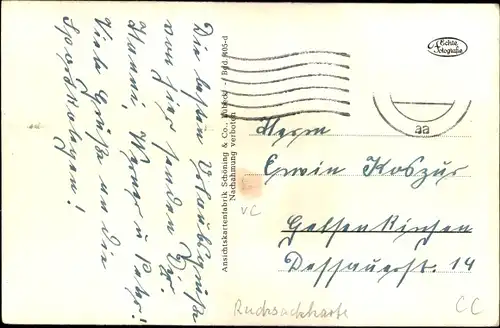 Die besten Urlaubsgrüße
von hier senden Dir
Hanni, Werner u. Peter!
Viele Grüße an die
Sportkolegen!
Ansichtskartenfabrik Schöning & Co., Lübeck
Nachahmung verboten
Echte
Fotografie
aa
Herrn
Erwin Koszür
Gelsenkirchen
Dessauerstr. 14
Rucksackkarte
VC
CC